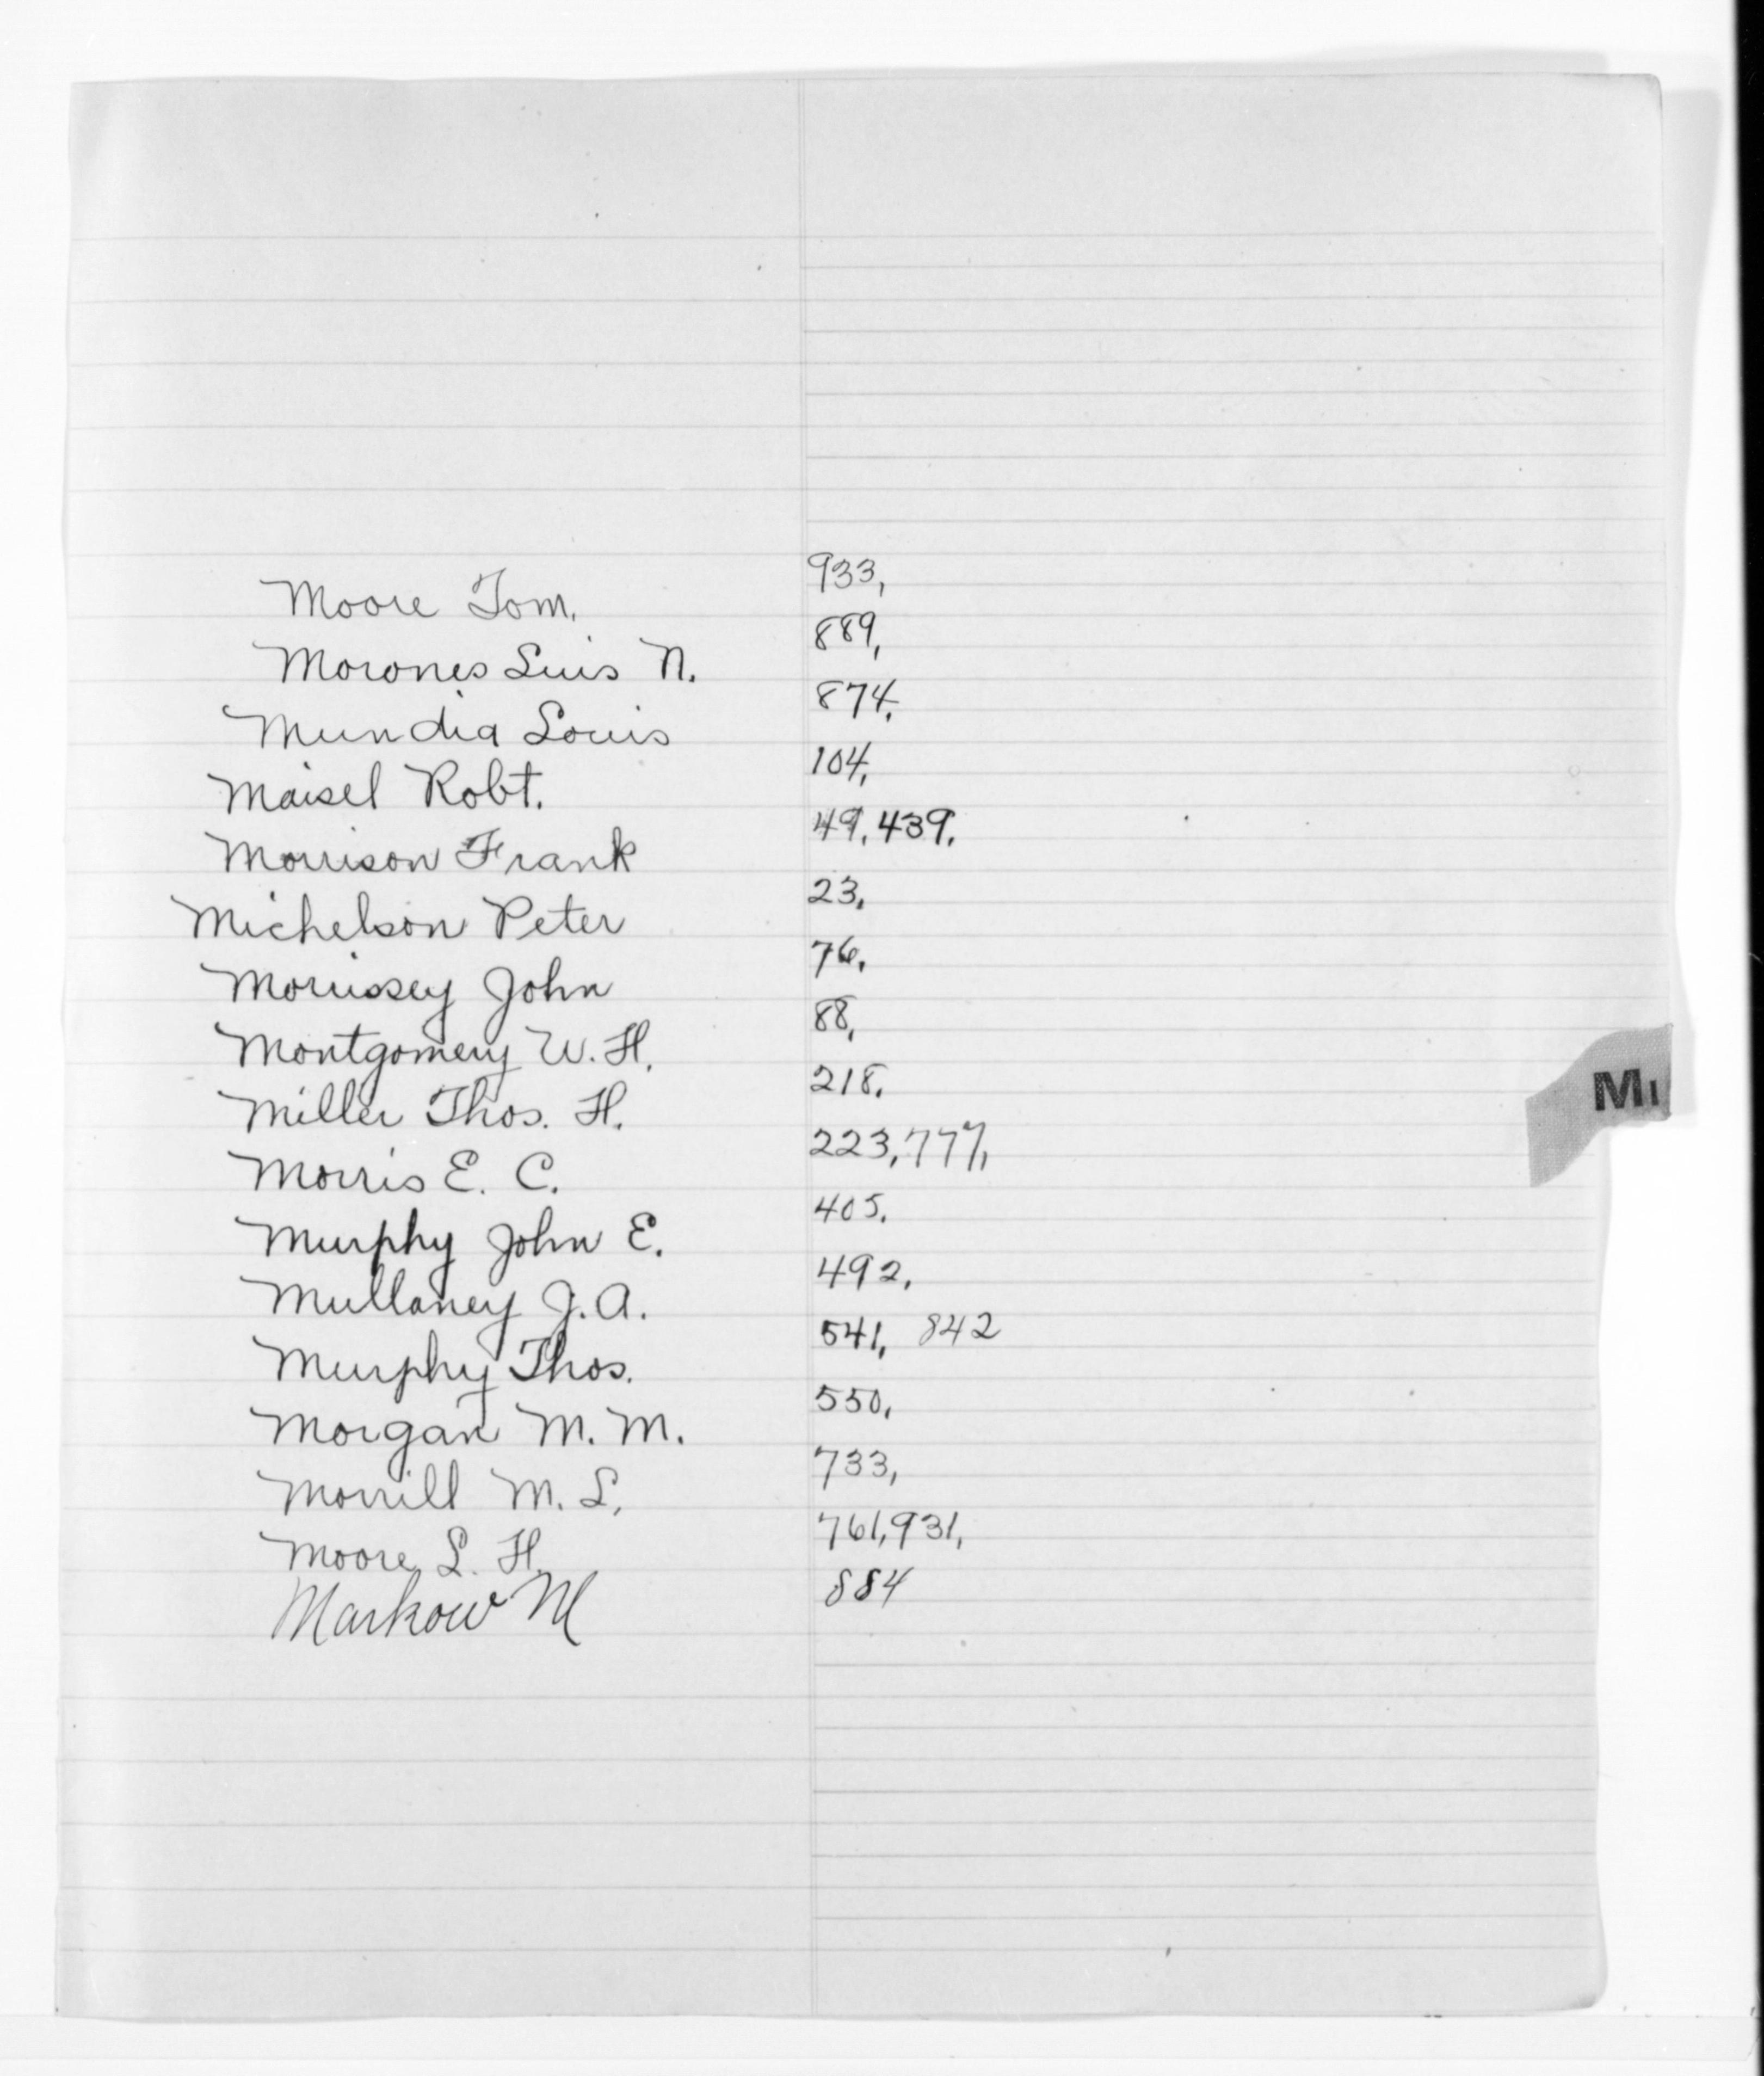 Moore Tom. 933,
Morones Luis N. 889,
Mundia Louis 874.
Maisel Robt. 104,
Morrison Frank 49, 439.
Michelson Peter 23,
Morrissey John 76.
Montgomery W. H. 88,
Miller Thos. H. 218.
Morris E. C. 223, 777,
Murphy John E. 405.
Mullaney J. A. 492,
Murphy Thos. 541, 842
Morgan M. M. 550,
Morrill M. L. 733,
Moore L. H. 761, 931,
Markow M 884
Mi